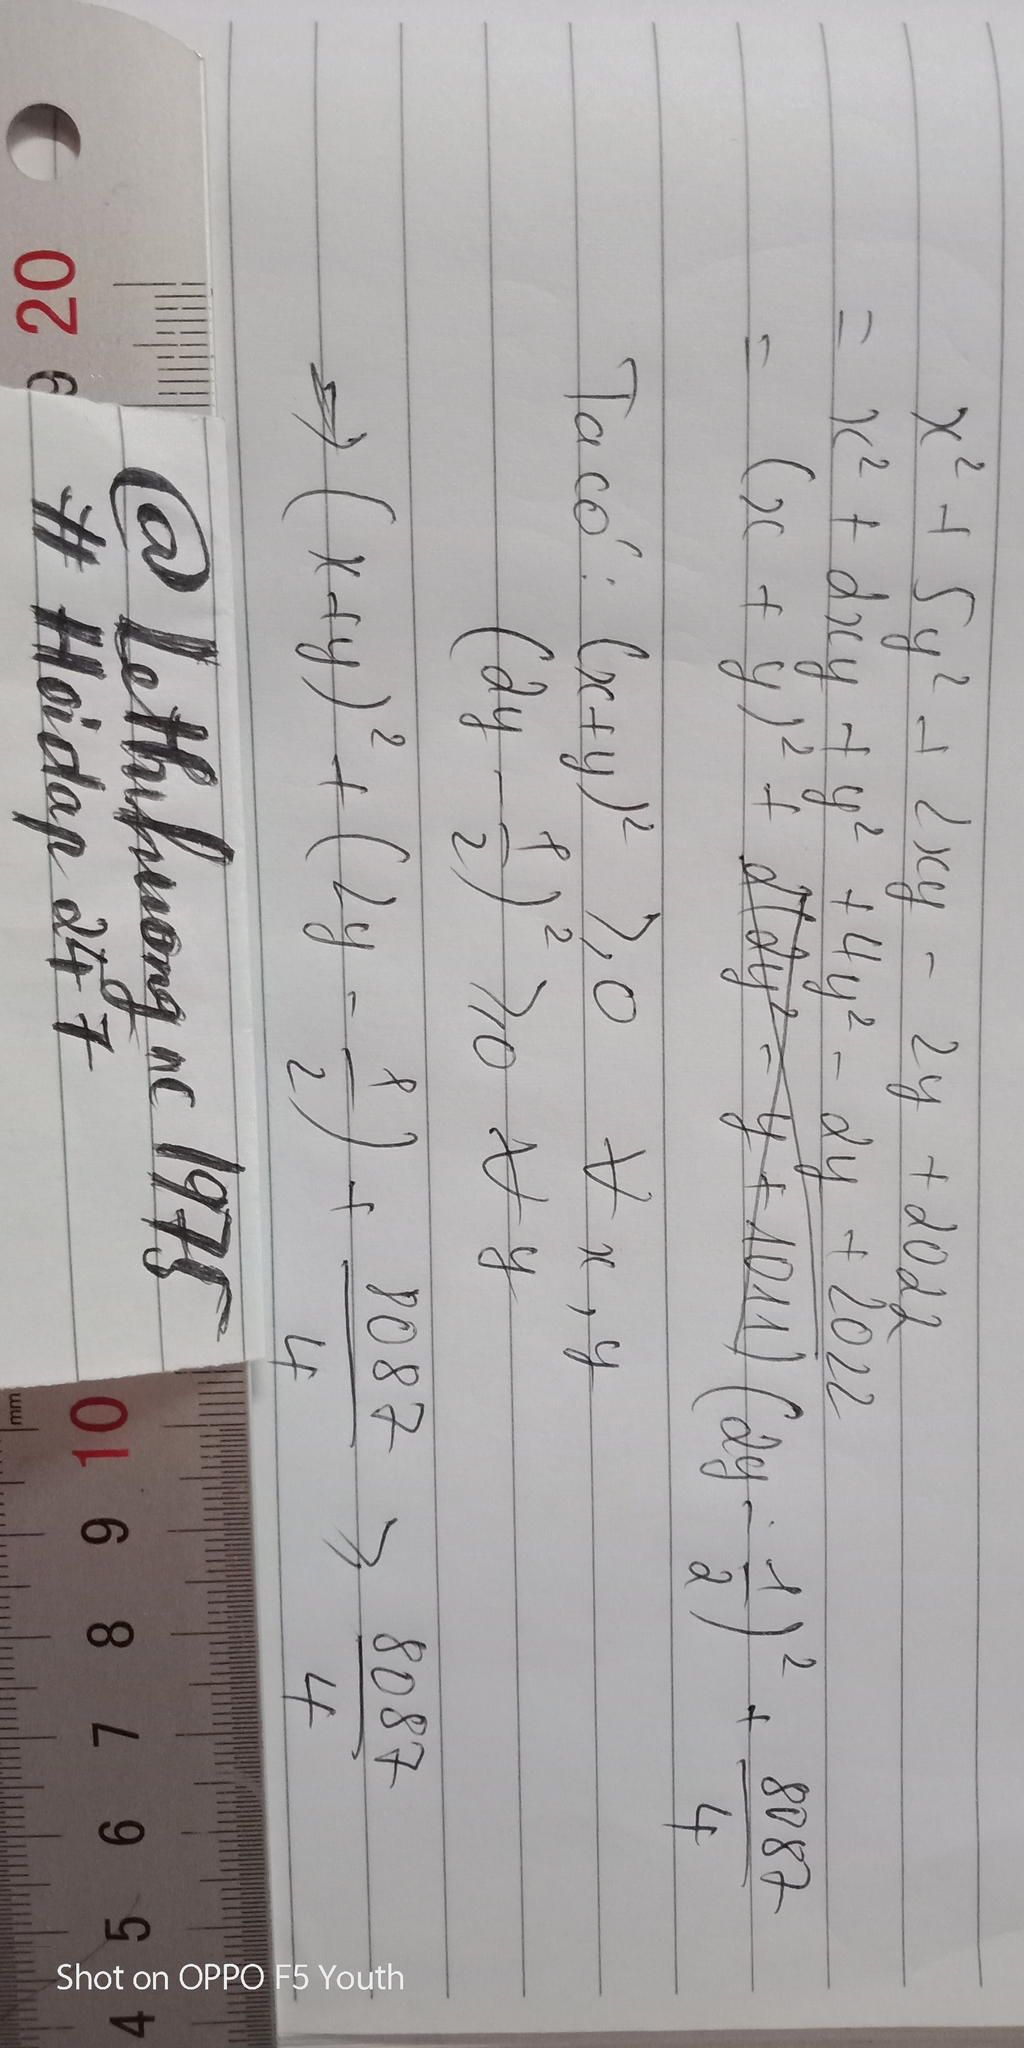 x² + 5y² + 2xy - 2y + 2022
= x² + 2xy + y² + 4y² - 2y + 2022
= (x + y)² + (2y - 1/2)² + 8087/4
Ta có: (x+y)² ≥ 0 ∀ x, y
(2y - 1/2)² ≥ 0 ∀ y
→ (x+y)² + (2y - 1/2) + 8087/4 ≥ 8087/4
@ lethuhuong nc 1975
# Hoidap 247
20
9
10
mm
9
8
7
6
5
4
Shot on OPPO F5 Youth